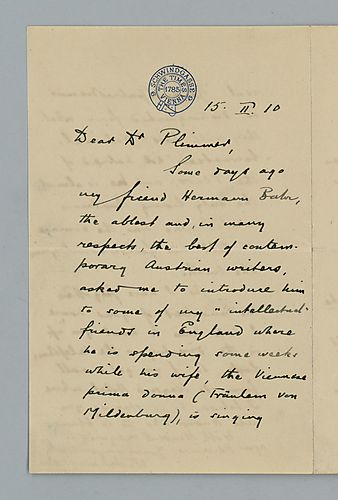 SCHWINDGASSE
THE TIMES
1785
VIENNA
15. II. 10
Dear Dr Plimmer,
Some days ago
my friend Hermann Bahr,
the ablest and, in many
respects, the best of contem-
porary Austrian writers,
asked me to introduce him
to some of my "intellectual"
friends in England where
he is spending some weeks
while his wife, the Viennese
prima donna (Fräulein von
Mildenburg), is singing